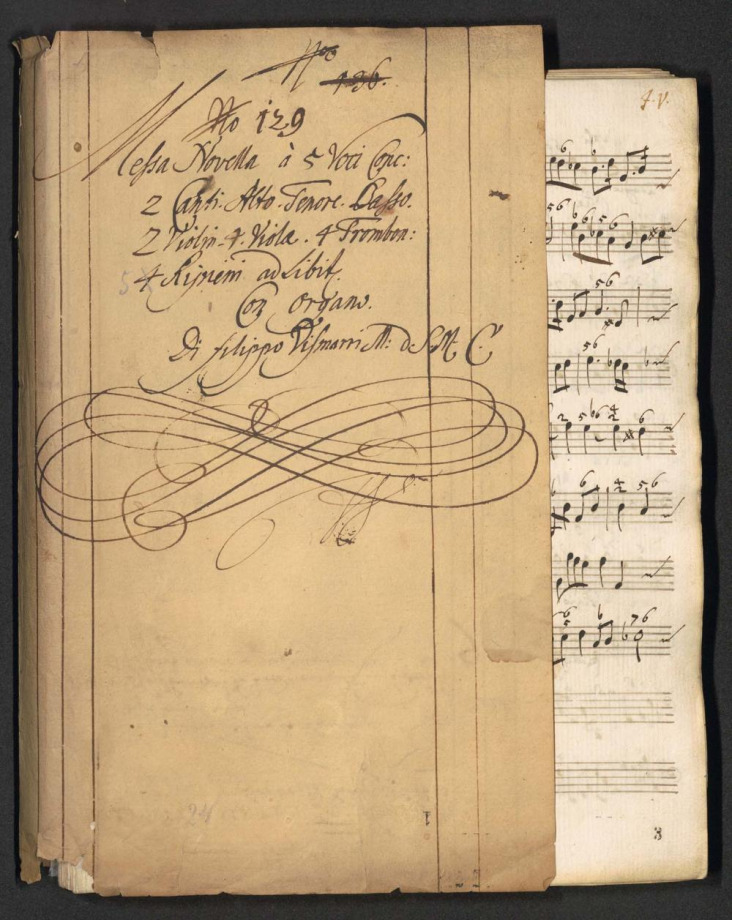 No
136.
No 129
Messa Novella à 5 Voci Conc:
2 Canti. Alto. Tenore. Basso.
2 Violin. 4 Violæ. 4 Trombon:
4 Ripieni ad Libit.
Con Organo.
Di Filippo Vismarri M: d S. M. C.
24
J. V.
8